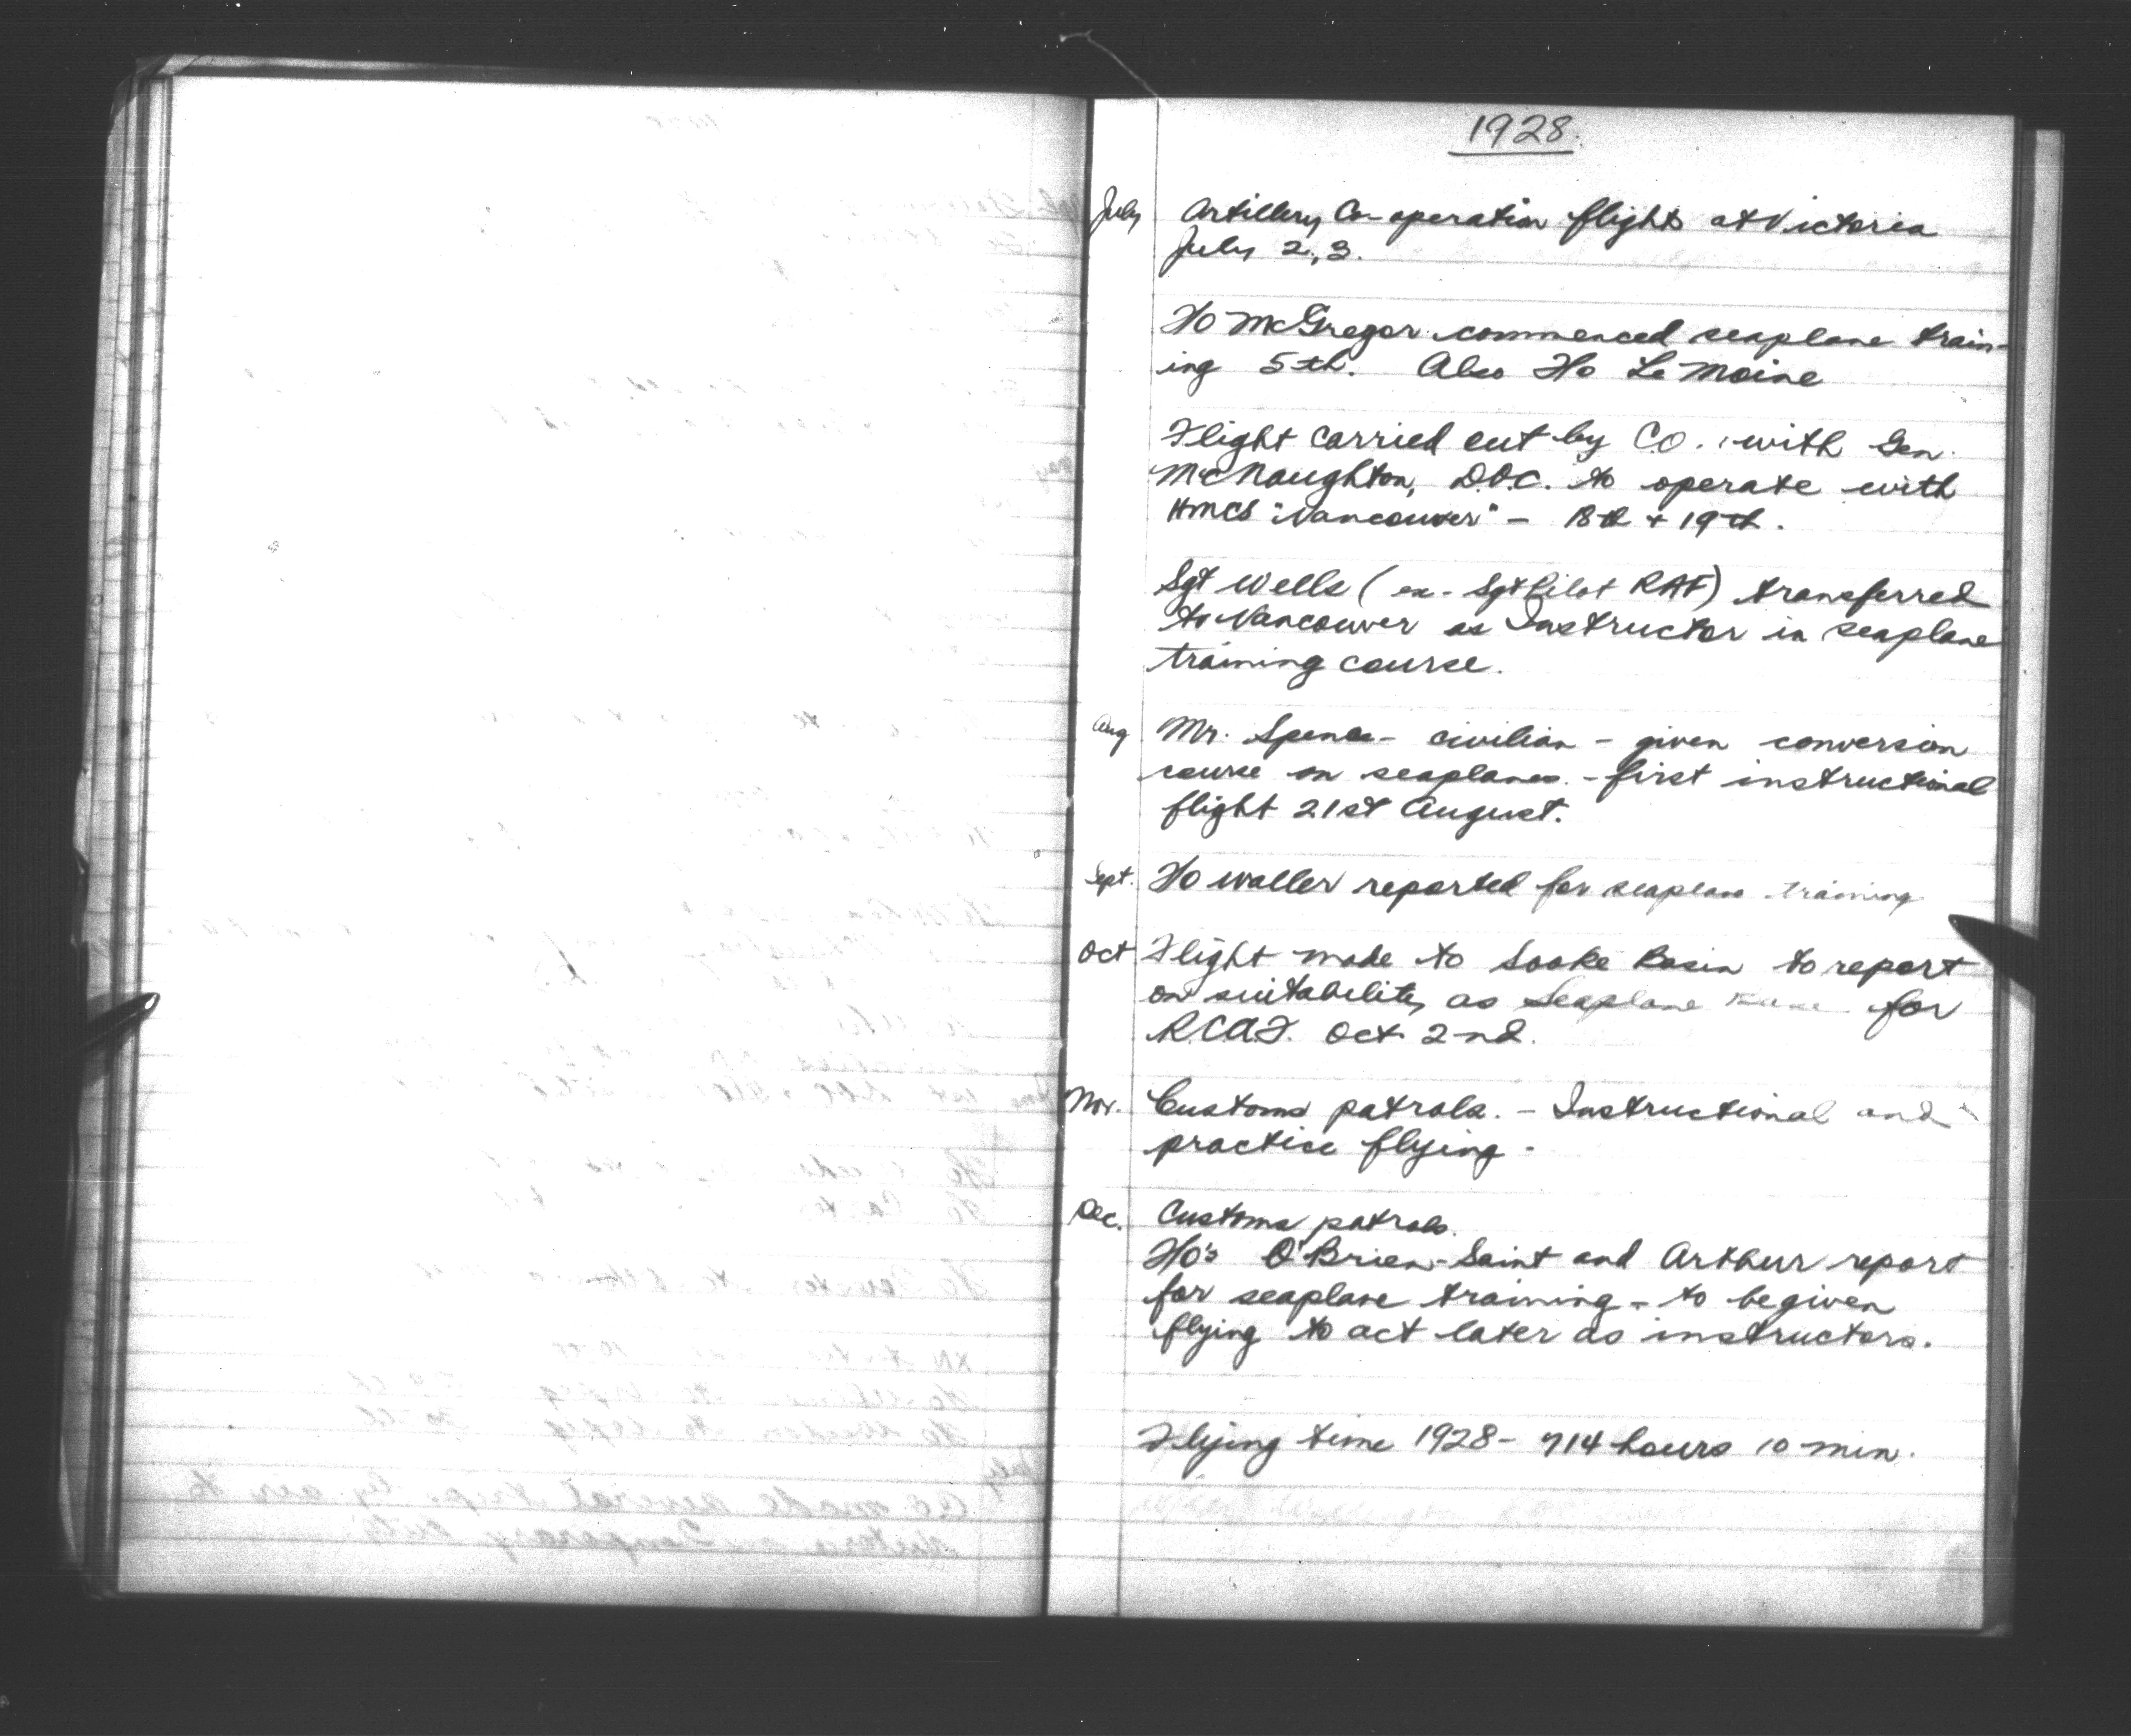 1928.
July Artillery Co-operation flights at Victoria
July 2, 3.
F/O McGregor commenced seaplane train-
ing 5th. Also F/O Le Moine
Flight carried out by C.O. with Gen.
McNaughton, D.O.C. to operate with
HMCS "Vancouver" - 18th + 19th.
Sgt Wells (ex- Sgt Pilot RAF) transferred
to Vancouver as Instructor in seaplane
training course.
Aug Mr. Spence - civilian - given conversion
course on seaplanes. - first instructional
flight 21st August.
Sept. F/O Waller reported for seaplane training
Oct Flight made to Sooke Basin to report
on suitability as Seaplane Base for
R.C.A.F. Oct 2nd.
Nov. Customs patrols. - Instructional and
practice flying -
Dec. Customs patrols.
F/O's O'Brien-Saint and Arthur report
for seaplane training - to be given
flying to act later as instructors.
Flying time 1928 - 714 hours 10 min.